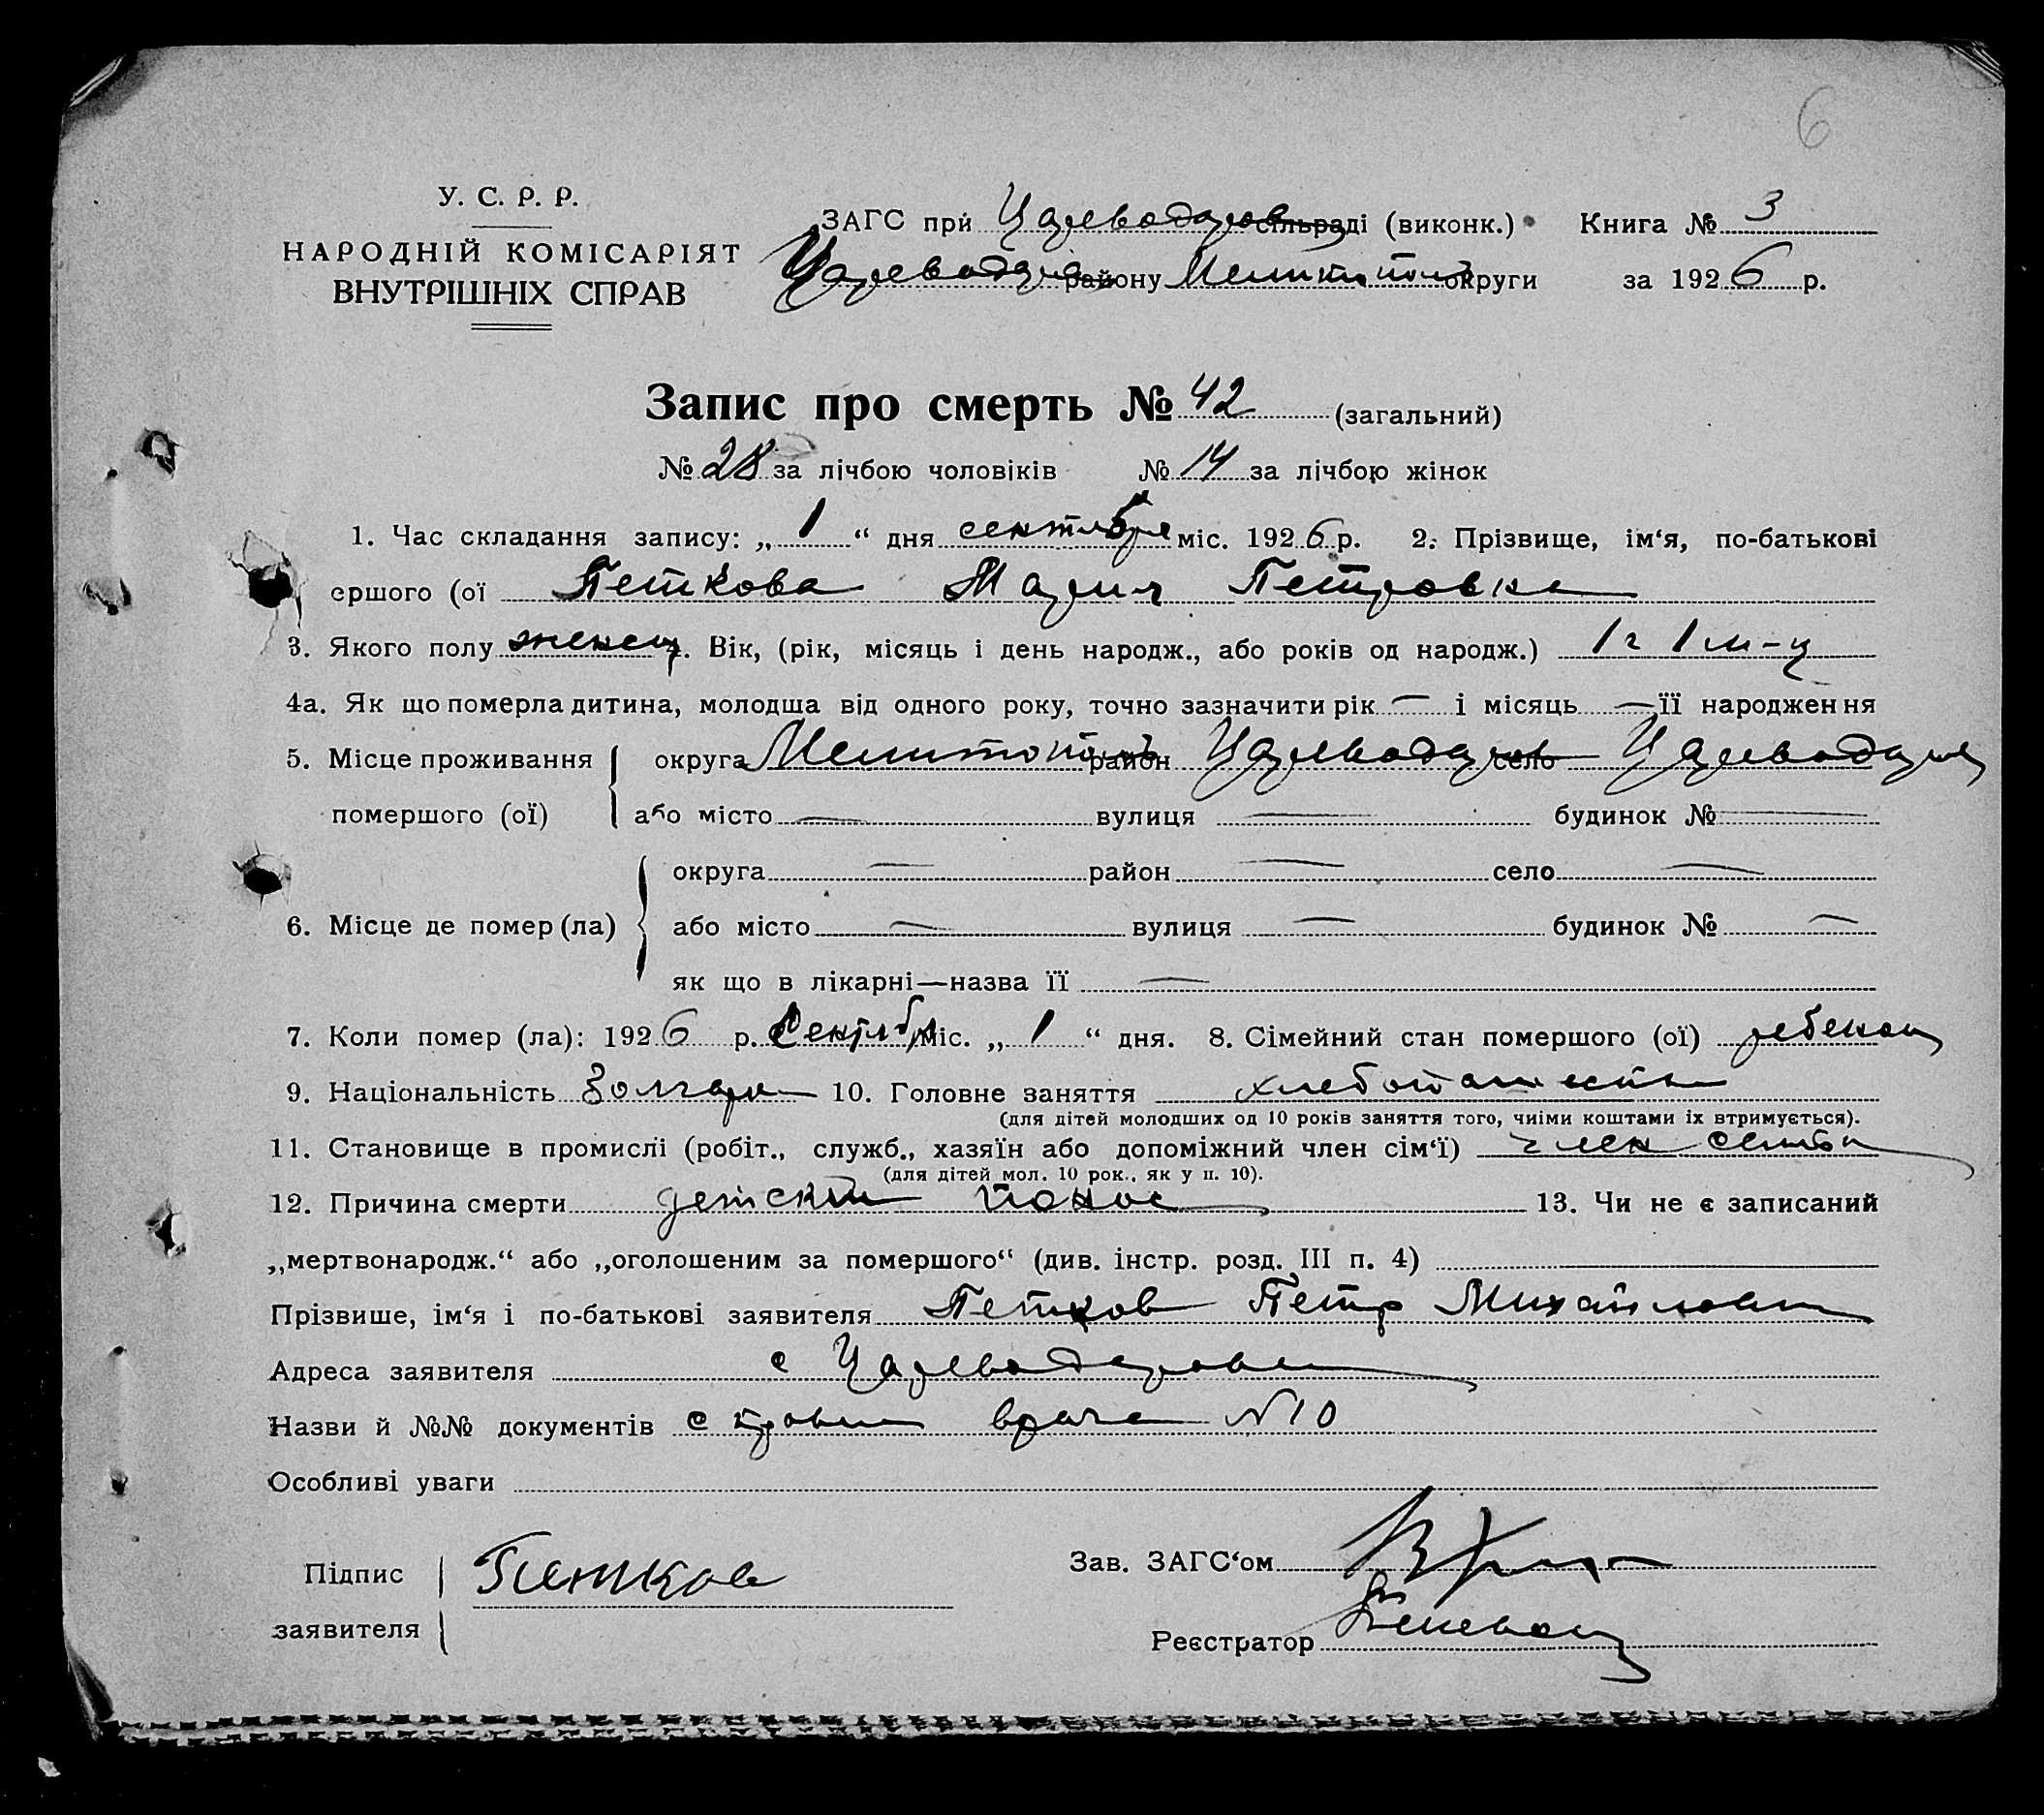 6
У. С. Р. Р.
НАРОДНІЙ КОМІСАРІЯТ
ВНУТРІШНІХ СПРАВ
ЗАГС при Цареводаров сільраді (виконк.) Книга № 3
району Мелитополь округи за 1926 р.
Запис про смерть № 42 (загальний)
№ 28 за лічбою чоловіків № 14 за лічбою жінок
1. Час складання запису: „ 1 “ дня сентября міс. 1926 р. 2. Прізвище, ім‘я, по-батькові
ершого (ої Петкова Мария Петровна
3. Якого полу женск. Вік, (рік, місяць і день народж., або років од народж.) 1 г 1 м-ц
4а. Як що померла дитина, молодша від одного року, точно зазначити рік — і місяць — її народження
5. Місце проживання округа Мелитополь район Цареводаров село
помершого (ої) або місто — вулиця — будинок № —
округа — район — село —
6. Місце де помер (ла) або місто — вулиця — будинок № —
як що в лікарні—назва її —
7. Коли помер (ла): 1926 р. Сентябр міс. „ 1 “ дня. 8. Сімейний стан помершого (ої) ребенок
9. Національність болгари 10. Головне заняття хлебопашество
(для дітей молодших од 10 років заняття того, чиїми коштами їх втримується).
11. Становище в промислі (робіт., служб., хазяїн або допоміжний член сім‘ї) член семьи
(для дітей мол. 10 рок., як у п. 10).
12. Причина смерти детский понос 13. Чи не є записаний
„мертвонародж.“ або „оголошеним за помершого“ (див. інстр. розд. III п. 4)
Прізвише, ім‘я і по-батькові заявителя Петков Петр Михайлович
Адреса заявителя с Цареводаровка
Назви й №№ документів справка врача № 10
Особливі уваги
Підпис заявителя Петков
Зав. ЗАГС‘ом
Реєстратор